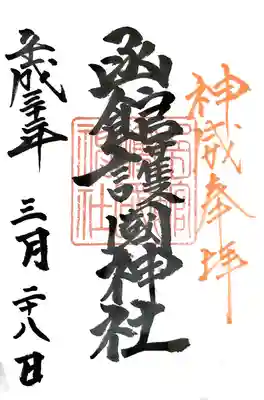 神威奉拝
函館護國神社
平成三十年 三月 二十八日